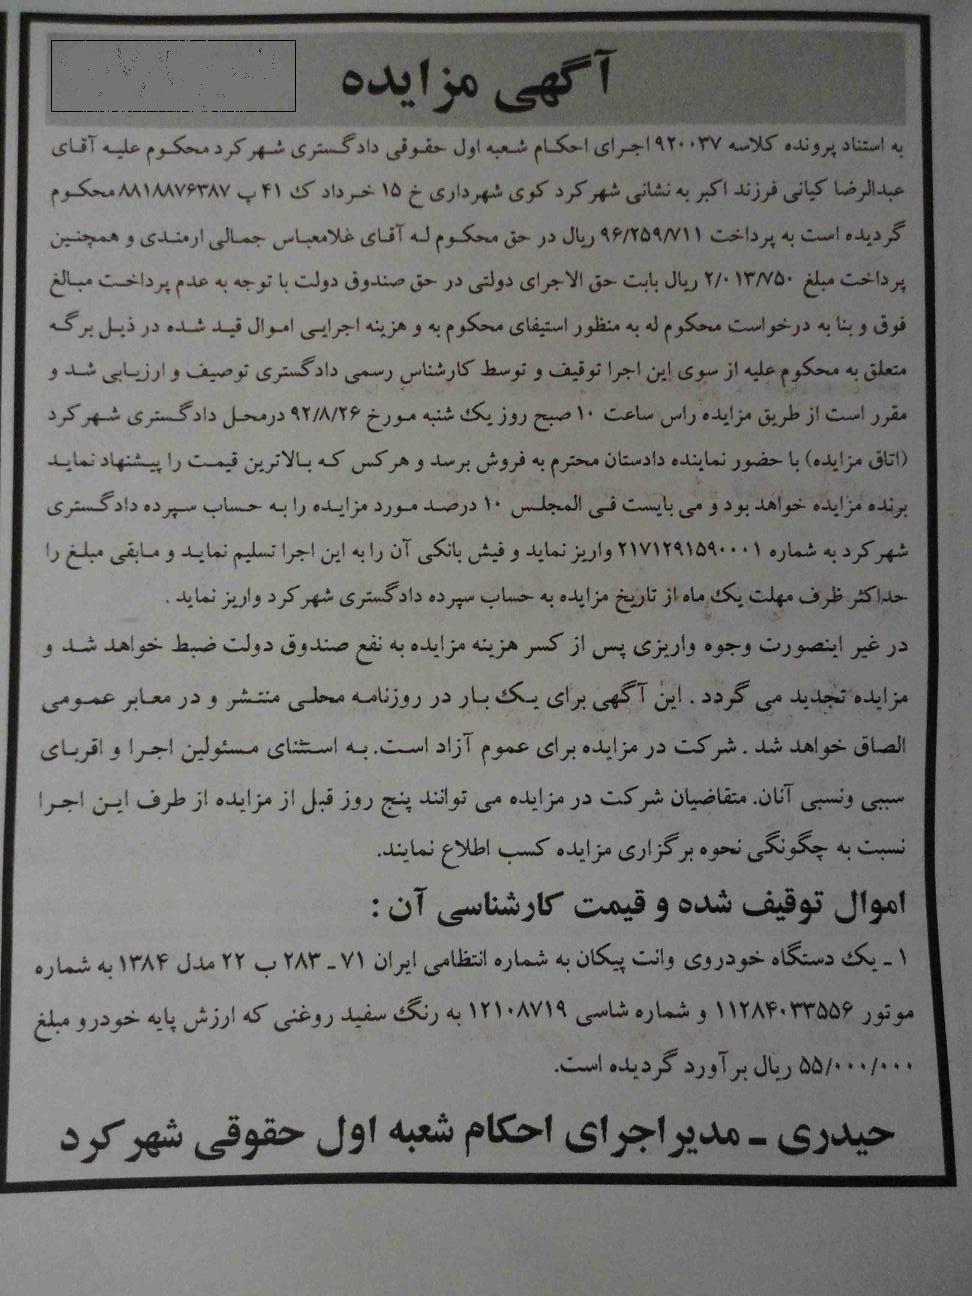 آگهی مزایده
به استناد پرونده کلاسه ۹۲۰۰۳۷ اجرای احکام شعبه اول حقوقی دادگستری شهرکرد محکوم علیه آقای
عبدالرضا کیانی فرزند اکبر به نشانی شهرکرد کوی شهرداری خ ۱۵ خرداد ک ۴۱ پ ۸۸۱۸۸۷۶۳۸۷ محکوم
گردیده است به پرداخت ۹۶/۲۵۹/۷۱۱ ریال در حق محکوم له آقای غلامعباس جمالی ارمندی و همچنین
پرداخت مبلغ ۲/۰۱۳/۷۵۰ ریال بابت حق الاجرای دولتی در حق صندوق دولت با توجه به عدم پرداخت مبالغ
فوق و بنا به درخواست محکوم له به منظور استیفای محکوم به و هزینه اجرایی اموال قید شده در ذیل برگه
متعلق به محکوم علیه از سوی این اجرا توقیف و توسط کارشناس رسمی دادگستری توصیف و ارزیابی شد و
مقرر است از طریق مزایده راس ساعت ۱۰ صبح روز یک شنبه مورخ ۹۲/۸/۲۶ درمحل دادگستری شهرکرد
(اتاق مزایده) با حضور نماینده دادستان محترم به فروش برسد و هرکس که بالاترین قیمت را پیشنهاد نماید
برنده مزایده خواهد بود و می بایست فی المجلس ۱۰ درصد مورد مزایده را به حساب سپرده دادگستری
شهرکرد به شماره ۲۱۷۱۲۹۱۵۹۰۰۰۱ واریز نماید و فیش بانکی آن را به این اجرا تسلیم نماید و مابقی مبلغ را
حداکثر ظرف مهلت یک ماه از تاریخ مزایده به حساب سپرده دادگستری شهرکرد واریز نماید .
در غیر اینصورت وجوه واریزی پس از کسر هزینه مزایده به نفع صندوق دولت ضبط خواهد شد و
مزایده تجدید می گردد . این آگهی برای یک بار در روزنامه محلی منتشر و در معابر عمومی
الصاق خواهد شد . شرکت در مزایده برای عموم آزاد است. به استثنای مسئولین اجرا و اقربای
سببی ونسبی آنان. متقاضیان شرکت در مزایده می توانند پنج روز قبل از مزایده از طرف این اجرا
نسبت به چگونگی نحوه برگزاری مزایده کسب اطلاع نمایند.
اموال توقیف شده و قیمت کارشناسی آن :
۱ ـ یک دستگاه خودروی وانت پیکان به شماره انتظامی ایران ۷۱ ـ ۲۸۳ ب ۲۲ مدل ۱۳۸۴ به شماره
موتور ۱۱۲۸۴۰۳۳۵۵۶ و شماره شاسی ۱۲۱۰۸۷۱۹ به رنگ سفید روغنی که ارزش پایه خودرو مبلغ
۵۵/۰۰۰/۰۰۰ ریال برآورد گردیده است.
حیدری ـ مدیر اجرای احکام شعبه اول حقوقی شهرکرد